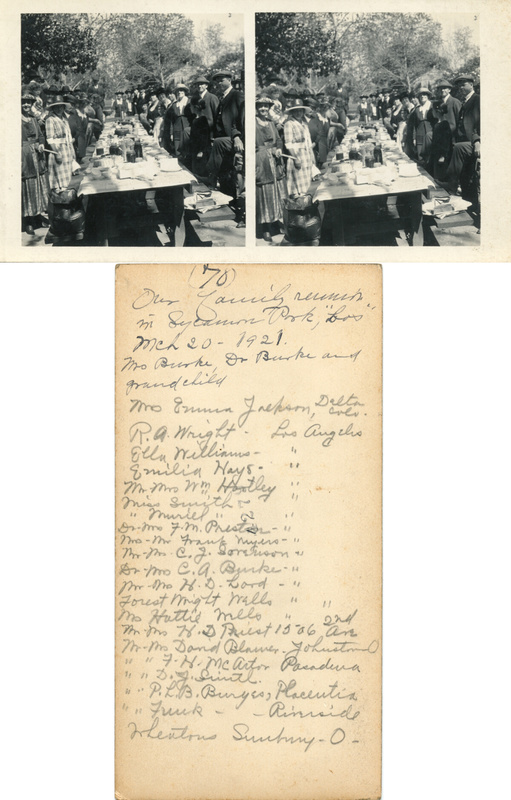 2
2
(70)
Our Family reunion
in Sycamore Park, "Los"
Mch 20 - 1921.
Mrs Burke, Dr Burke and
grandchild
Mrs Emma Jackson, Delta
Colo.
R. A. Wright - Los Angels
Ella Williams - "
Emilia Hays - "
Mr. Mrs Wm Hartley "
Miss Smith "
" Muriel " "
Dr. Mrs F. M. Preston - "
Mrs - Mr Frank Myers - "
Mr - Mrs C. J. Sorenson - "
Dr - Mrs C. A. Burke - "
Mr - Mrs H. D. Lord - "
Forest Wright Wells " "
Mrs Hattie Wells " 2nd
Mr. Mrs H. D Priest 1506 Ave
Mr - Mrs David Blamer - Johnstown O
" " F. H. McArtor Pasadena
" " D. J. Smith.
" " P. L. B. Burges, Placentia
" " Funk - - Riverside
Wheatons Sunbury - O -